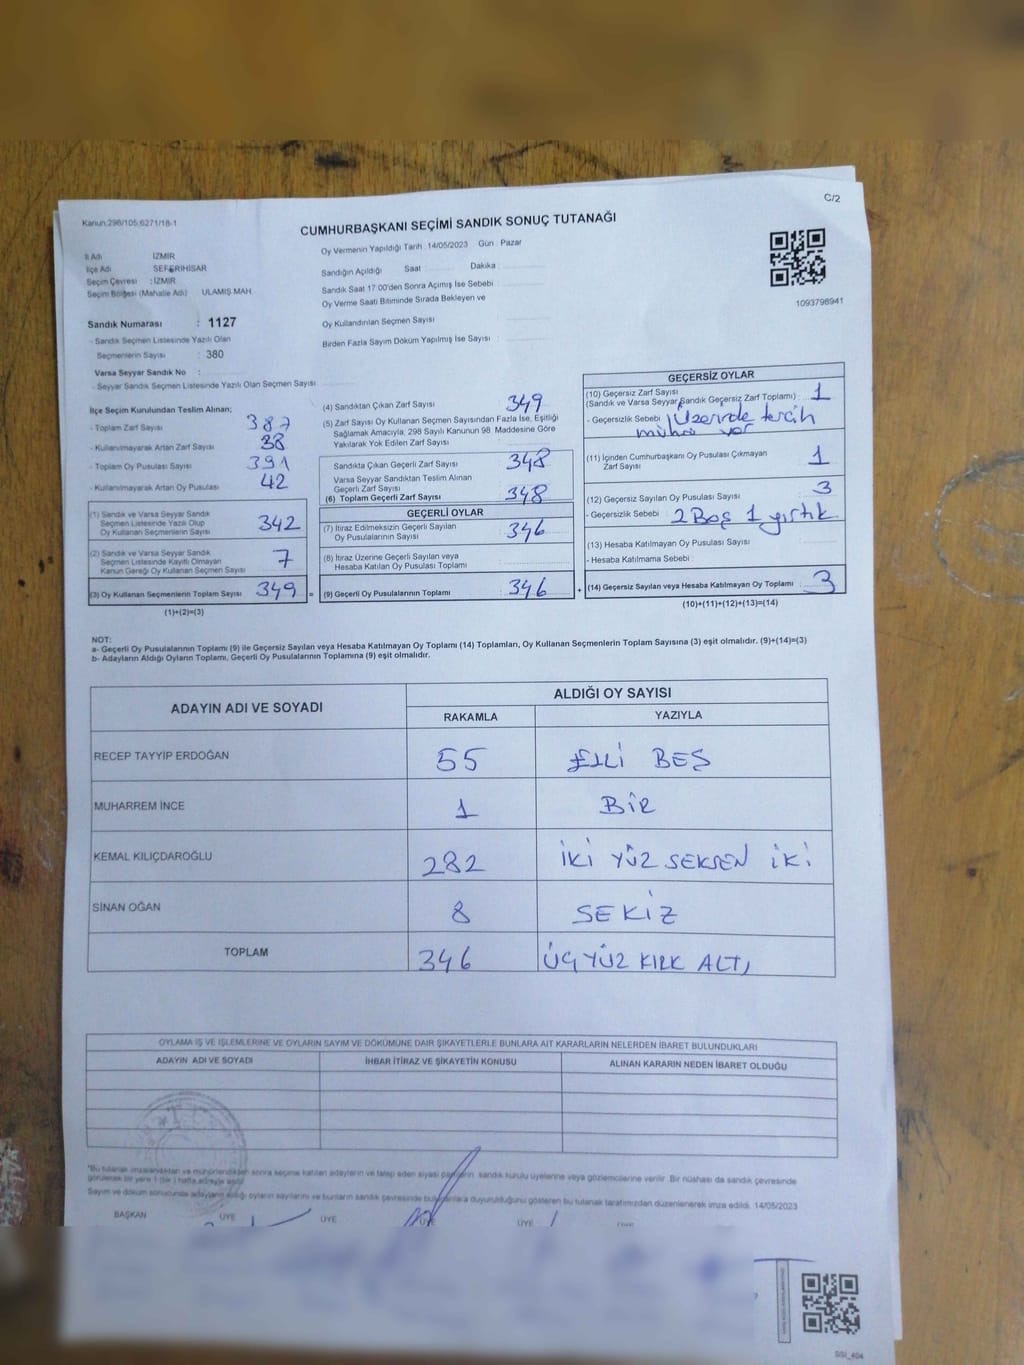 C/2
Kanun:298/105;6271/18-1
CUMHURBAŞKANI SEÇİMİ SANDIK SONUÇ TUTANAĞI
İl Adı İZMİR
İlçe Adı SEFERİHİSAR
Seçim Çevresi : İZMİR
Seçim Bölgesi (Mahalle Adı) ULAMIŞ MAH.
Sandık Numarası : 1127
- Sandık Seçmen Listesinde Yazılı Olan
Seçmenlerin Sayısı : 380
Varsa Seyyar Sandık No :
- Seyyar Sandık Seçmen Listesinde Yazılı Olan Seçmen Sayısı
Oy Vermenin Yapıldığı Tarih :14/05/2023 Gün : Pazar
Sandığın Açıldığı Saat Dakika
Sandık Saat 17:00'den Sonra Açımış İse Sebebi :
Oy Verme Saati Bitiminde Sırada Bekleyen ve
Oy Kullandırılan Seçmen Sayısı :
Birden Fazla Sayım Döküm Yapılmış İse Sayısı :
1093798941
İlçe Seçim Kurulundan Teslim Alınan;
- Toplam Zarf Sayısı : 387
- Kullanılmayarak Artan Zarf Sayısı 38
- Toplam Oy Pusulası Sayısı 391
- Kullanılmayarak Artan Oy Pusulası 42
(1) Sandık ve Varsa Seyyar Sandık
Seçmen Listesinde Yazılı Olup
Oy Kullanan Seçmenlerin Sayısı 342
(2) Sandık ve Varsa Seyyar Sandık
Seçmen Listesinde Kayıtlı Olmayan
Kanun Gereği Oy Kullanan Seçmen Sayısı 7
(3) Oy Kullanan Seçmenlerin Toplam Sayısı 349 =
(1)+(2)=(3)
(4) Sandıktan Çıkan Zarf Sayısı 349
(5) Zarf Sayısı Oy Kullanan Seçmen Sayısından Fazla İse, Eşitliği
Sağlamak Amacıyla, 298 Sayılı Kanunun 98. Maddesine Göre
Yakılarak Yok Edilen Zarf Sayısı :
Sandıkta Çıkan Geçerli Zarf Sayısı : 348
Varsa Seyyar Sandıktan Teslim Alınan
Geçerli Zarf Sayısı
(6) Toplam Geçerli Zarf Sayısı 348
GEÇERLİ OYLAR
(7) İtiraz Edilmeksizin Geçerli Sayılan
Oy Pusulalarının Sayısı : 346
(8) İtiraz Üzerine Geçerli Sayılan veya
Hesaba Katılan Oy Pusulası Toplamı :
(9) Geçerli Oy Pusulalarının Toplamı : 346 +
GEÇERSİZ OYLAR
(10) Geçersiz Zarf Sayısı
(Sandık ve Varsa Seyyar Sandık Geçersiz Zarf Toplamı) : 1
- Geçersizlik Sebebi : Üzerinde tercih
mührü var
(11) İçinden Cumhurbaşkanı Oy Pusulası Çıkmayan
Zarf Sayısı : 1
(12) Geçersiz Sayılan Oy Pusulası Sayısı : 3
- Geçersizlik Sebebi : 2 Boş 1 yırtık
(13) Hesaba Katılmayan Oy Pusulası Sayısı :
- Hesaba Katılmama Sebebi :
(14) Geçersiz Sayılan veya Hesaba Katılmayan Oy Toplamı : 3
(10)+(11)+(12)+(13)=(14)
NOT:
a- Geçerli Oy Pusulalarının Toplamı (9) ile Geçersiz Sayılan veya Hesaba Katılmayan Oy Toplamı (14) Toplamları, Oy Kullanan Seçmenlerin Toplam Sayısına (3) eşit olmalıdır. (9)+(14)=(3)
b- Adayların Aldığı Oyların Toplamı, Geçerli Oy Pusulalarının Toplamına (9) eşit olmalıdır.
ADAYIN ADI VE SOYADI ALDIĞI OY SAYISI
RAKAMLA YAZIYLA
RECEP TAYYİP ERDOĞAN 55 ELLİ BEŞ
MUHARREM İNCE 1 BİR
KEMAL KILIÇDAROĞLU 282 İKİ YÜZ SEKSEN İKİ
SİNAN OĞAN 8 SEKİZ
TOPLAM 346 ÜÇ YÜZ KIRK ALTI
OYLAMA İŞ VE İŞLEMLERİNE VE OYLARIN SAYIM VE DÖKÜMÜNE DAİR ŞİKAYETLERLE BUNLARA AİT KARARLARIN NELERDEN İBARET BULUNDUKLARI
ADAYIN ADI VE SOYADI İHBAR İTİRAZ VE ŞİKAYETİN KONUSU ALINAN KARARIN NEDEN İBARET OLDUĞU
"Bu tutanak imzalandıktan ve mühürlendikten sonra seçime katılan adayların ve talep eden siyasi partilerin sandık kurulu üyelerine veya gözlemcilerine verilir. Bir nüshası da sandık çevresinde
görülecek bir yere 1 (bir ) hafta süreyle asılır
Sayım ve döküm sonucunda adayların aldığı oyların sayılarını ve bunların sandık çevresinde bulunanlara duyurulduğunu gösteren bu tutanak tarafımızdan düzenlenerek imza edildi. 14/05/2023
BAŞKAN ÜYE ÜYE ÜYE ÜYE
SSI_404